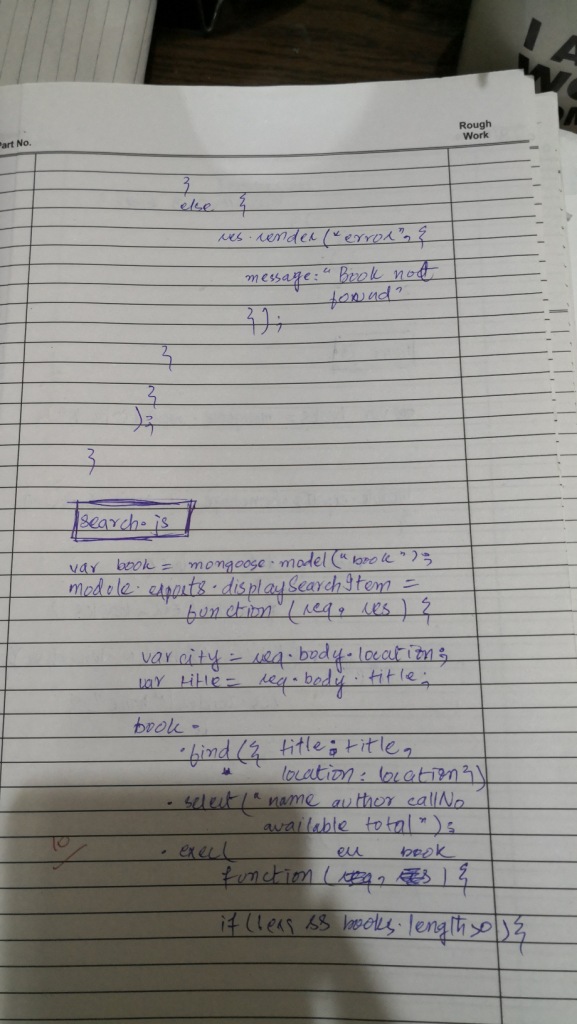 I A
WO
ON
Part No.
Rough
Work
}
else {
res.render("error", {
message: "Book not
found"
});
}
}
);
}
search.js
var book = mongoose.model("book");
module.exports.displaySearchItem =
function (req, res) {
var city = req.body.location;
var title = req.body.title;
book
.find({ title: title,
location: location})
.select("name author callNo
available total");
.exec(
err book
function (req, res) {
if (!err && books.length>0) {
10